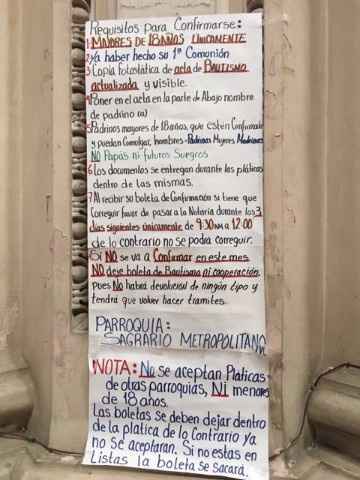 Requisitos para Confirmarse:
1 MAYORES DE 18 AÑOS UNICAMENTE
2 Ya haber hecho su 1ª Comunión
3 Copia fotostática de acta de BAUTISMO
actualizada y visible.
4 Poner en el acta en la parte de Abajo nombre
de padrino (a)
5 Padrinos mayores de 18 años, que estén Confirmados
y puedan Comulgar, hombres-Padrinos Mujeres Madrinas
NO Papás ni futuros Suegros
6 Los documentos se entregan durante las pláticas
dentro de las mismas.
7 Al recibir su boleta de Confirmación si tiene que
Corregir favor de pasar a la Notaría durante los 3
días siguientes únicamente de 9:30 AM a 12:00
de lo contrario no se podra corregir.
Si NO se va a Confirmar en este mes
NO deje boleta de Bautismo ni cooperación
pues No habrá devolución de ningún tipo y
tendrá que volver hacer tramites.
PARROQUIA:
SAGRARIO METROPOLITANO
NOTA: No se aceptan Platicas
de otras parroquias, NI menores
de 18 años.
Las boletas se deben dejar dentro
de la platica de lo Contrario ya
no se aceptaran. Si no estas en
Listas la boleta se sacará.